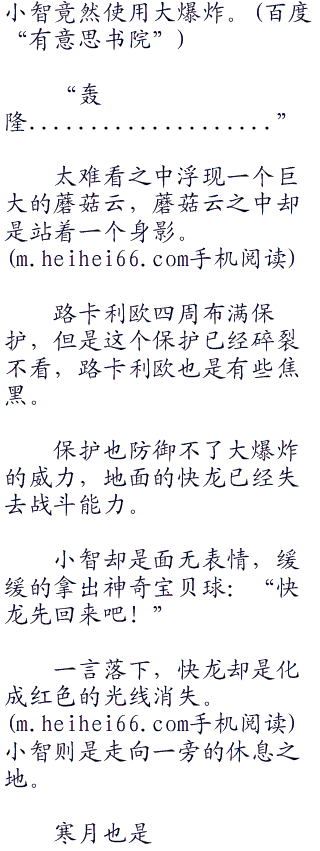 小智竟然使用大爆炸。(百度
“有意思书院”)
“轰
隆....................”
太难看之中浮现一个巨
大的蘑菇云，蘑菇云之中却
是站着一个身影。
(m.heihei66.com手机阅读)
路卡利欧四周布满保
护，但是这个保护已经碎裂
不看，路卡利欧也是有些焦
黑。
保护也防御不了大爆炸
的威力，地面的快龙已经失
去战斗能力。
小智却是面无表情，缓
缓的拿出神奇宝贝球：“快
龙先回来吧！”
一言落下，快龙却是化
成红色的光线消失。
(m.heihei66.com手机阅读)
小智则是走向一旁的休息之
地。
寒月也是